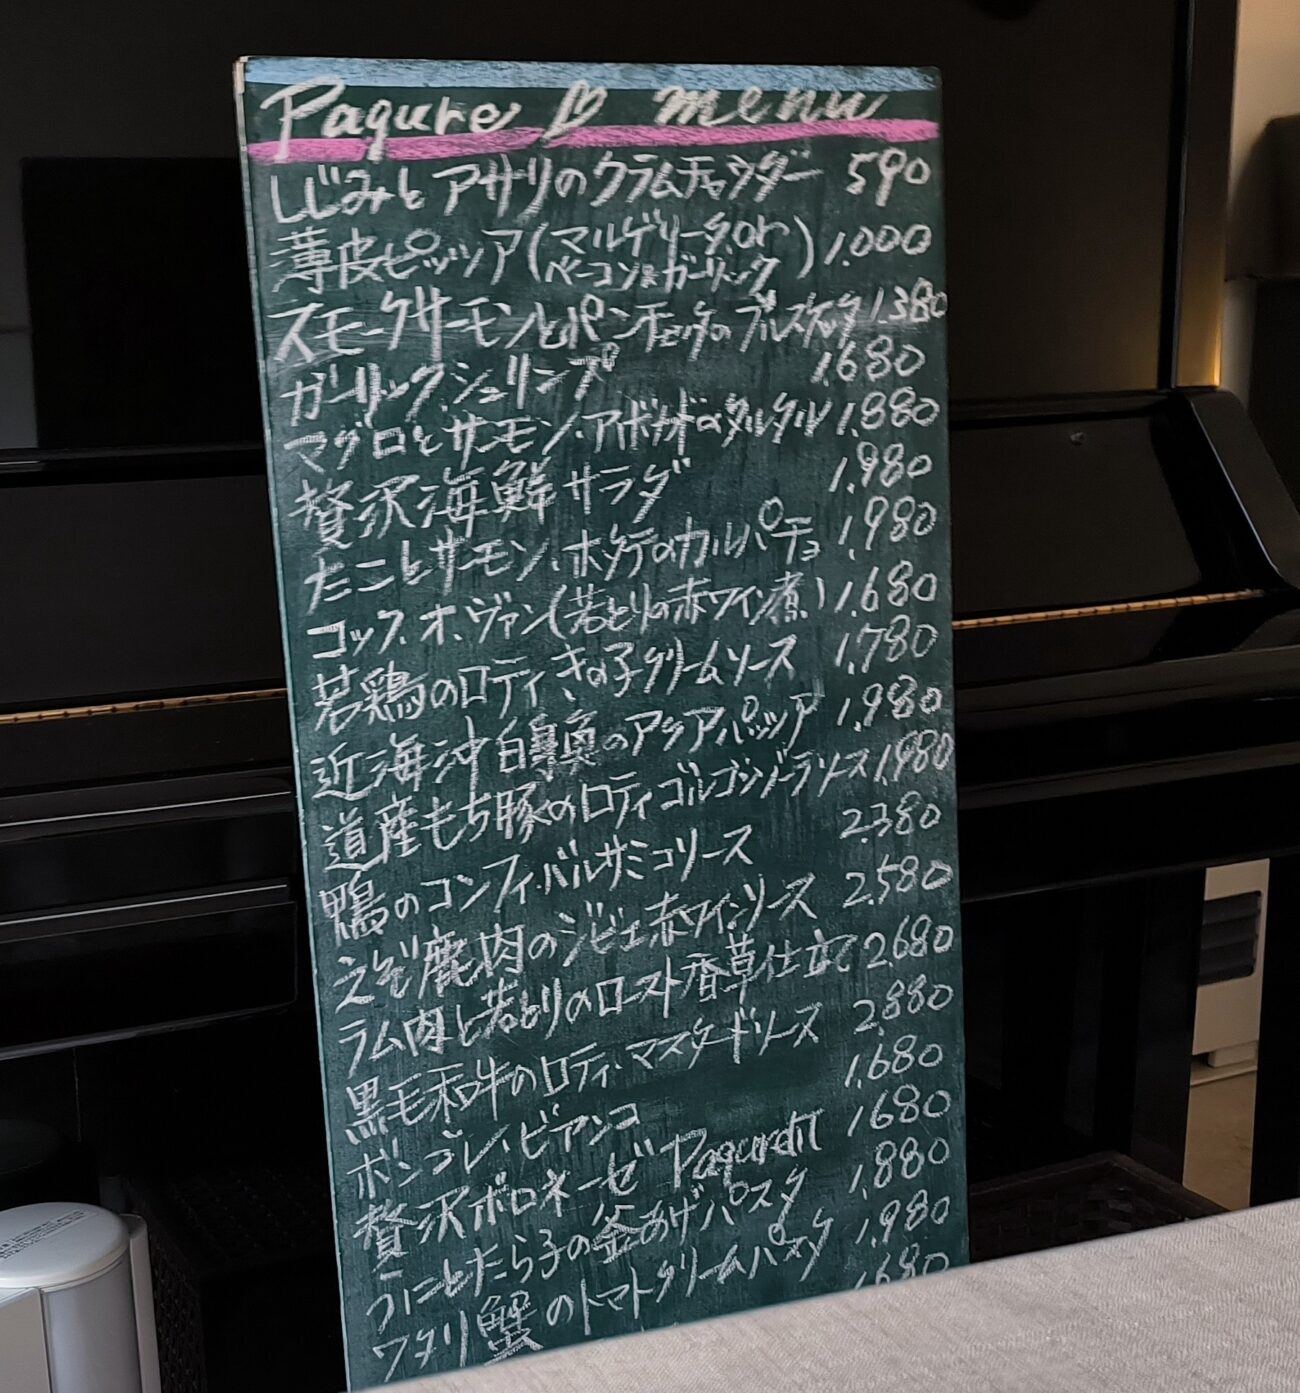 Pagure ♡ menu
しじみとアサリのクラムチャウダー 590
薄皮ピッツア(マルゲリータor ベーコン&ガーリック) 1.000
スモークサーモンとパンチェッタのブルスケッタ 1.380
ガーリック.シュリンプ 1.680
マグロとサーモン.アボカドのタルタル 1.880
贅沢海鮮サラダ 1.980
たことサーモン.ホタテのカルパチョ 1.980
コック.オ.ヴァン(若どりの赤ワイン煮) 1.680
若鶏のロティ.きの子クリームソース 1.780
近海沖白身魚のアクアパッツア 1.980
道産もち豚のロティゴルゴンゾーラソース 1.980
鴨のコンフィ.バルサミコソース 2.380
えぞ鹿肉のジビエ赤ワインソース 2.580
ラム肉と若どりのロースト香草仕立て 2.680
黒毛和牛のロティ.マスタードソース 2.880
ボンゴレ.ビアンコ 1.680
贅沢ボロネーゼ 1.680
うにとたら子の釜あげパスタ 1.880
ワタリ蟹のトマトクリームパスタ 1.980
1.680